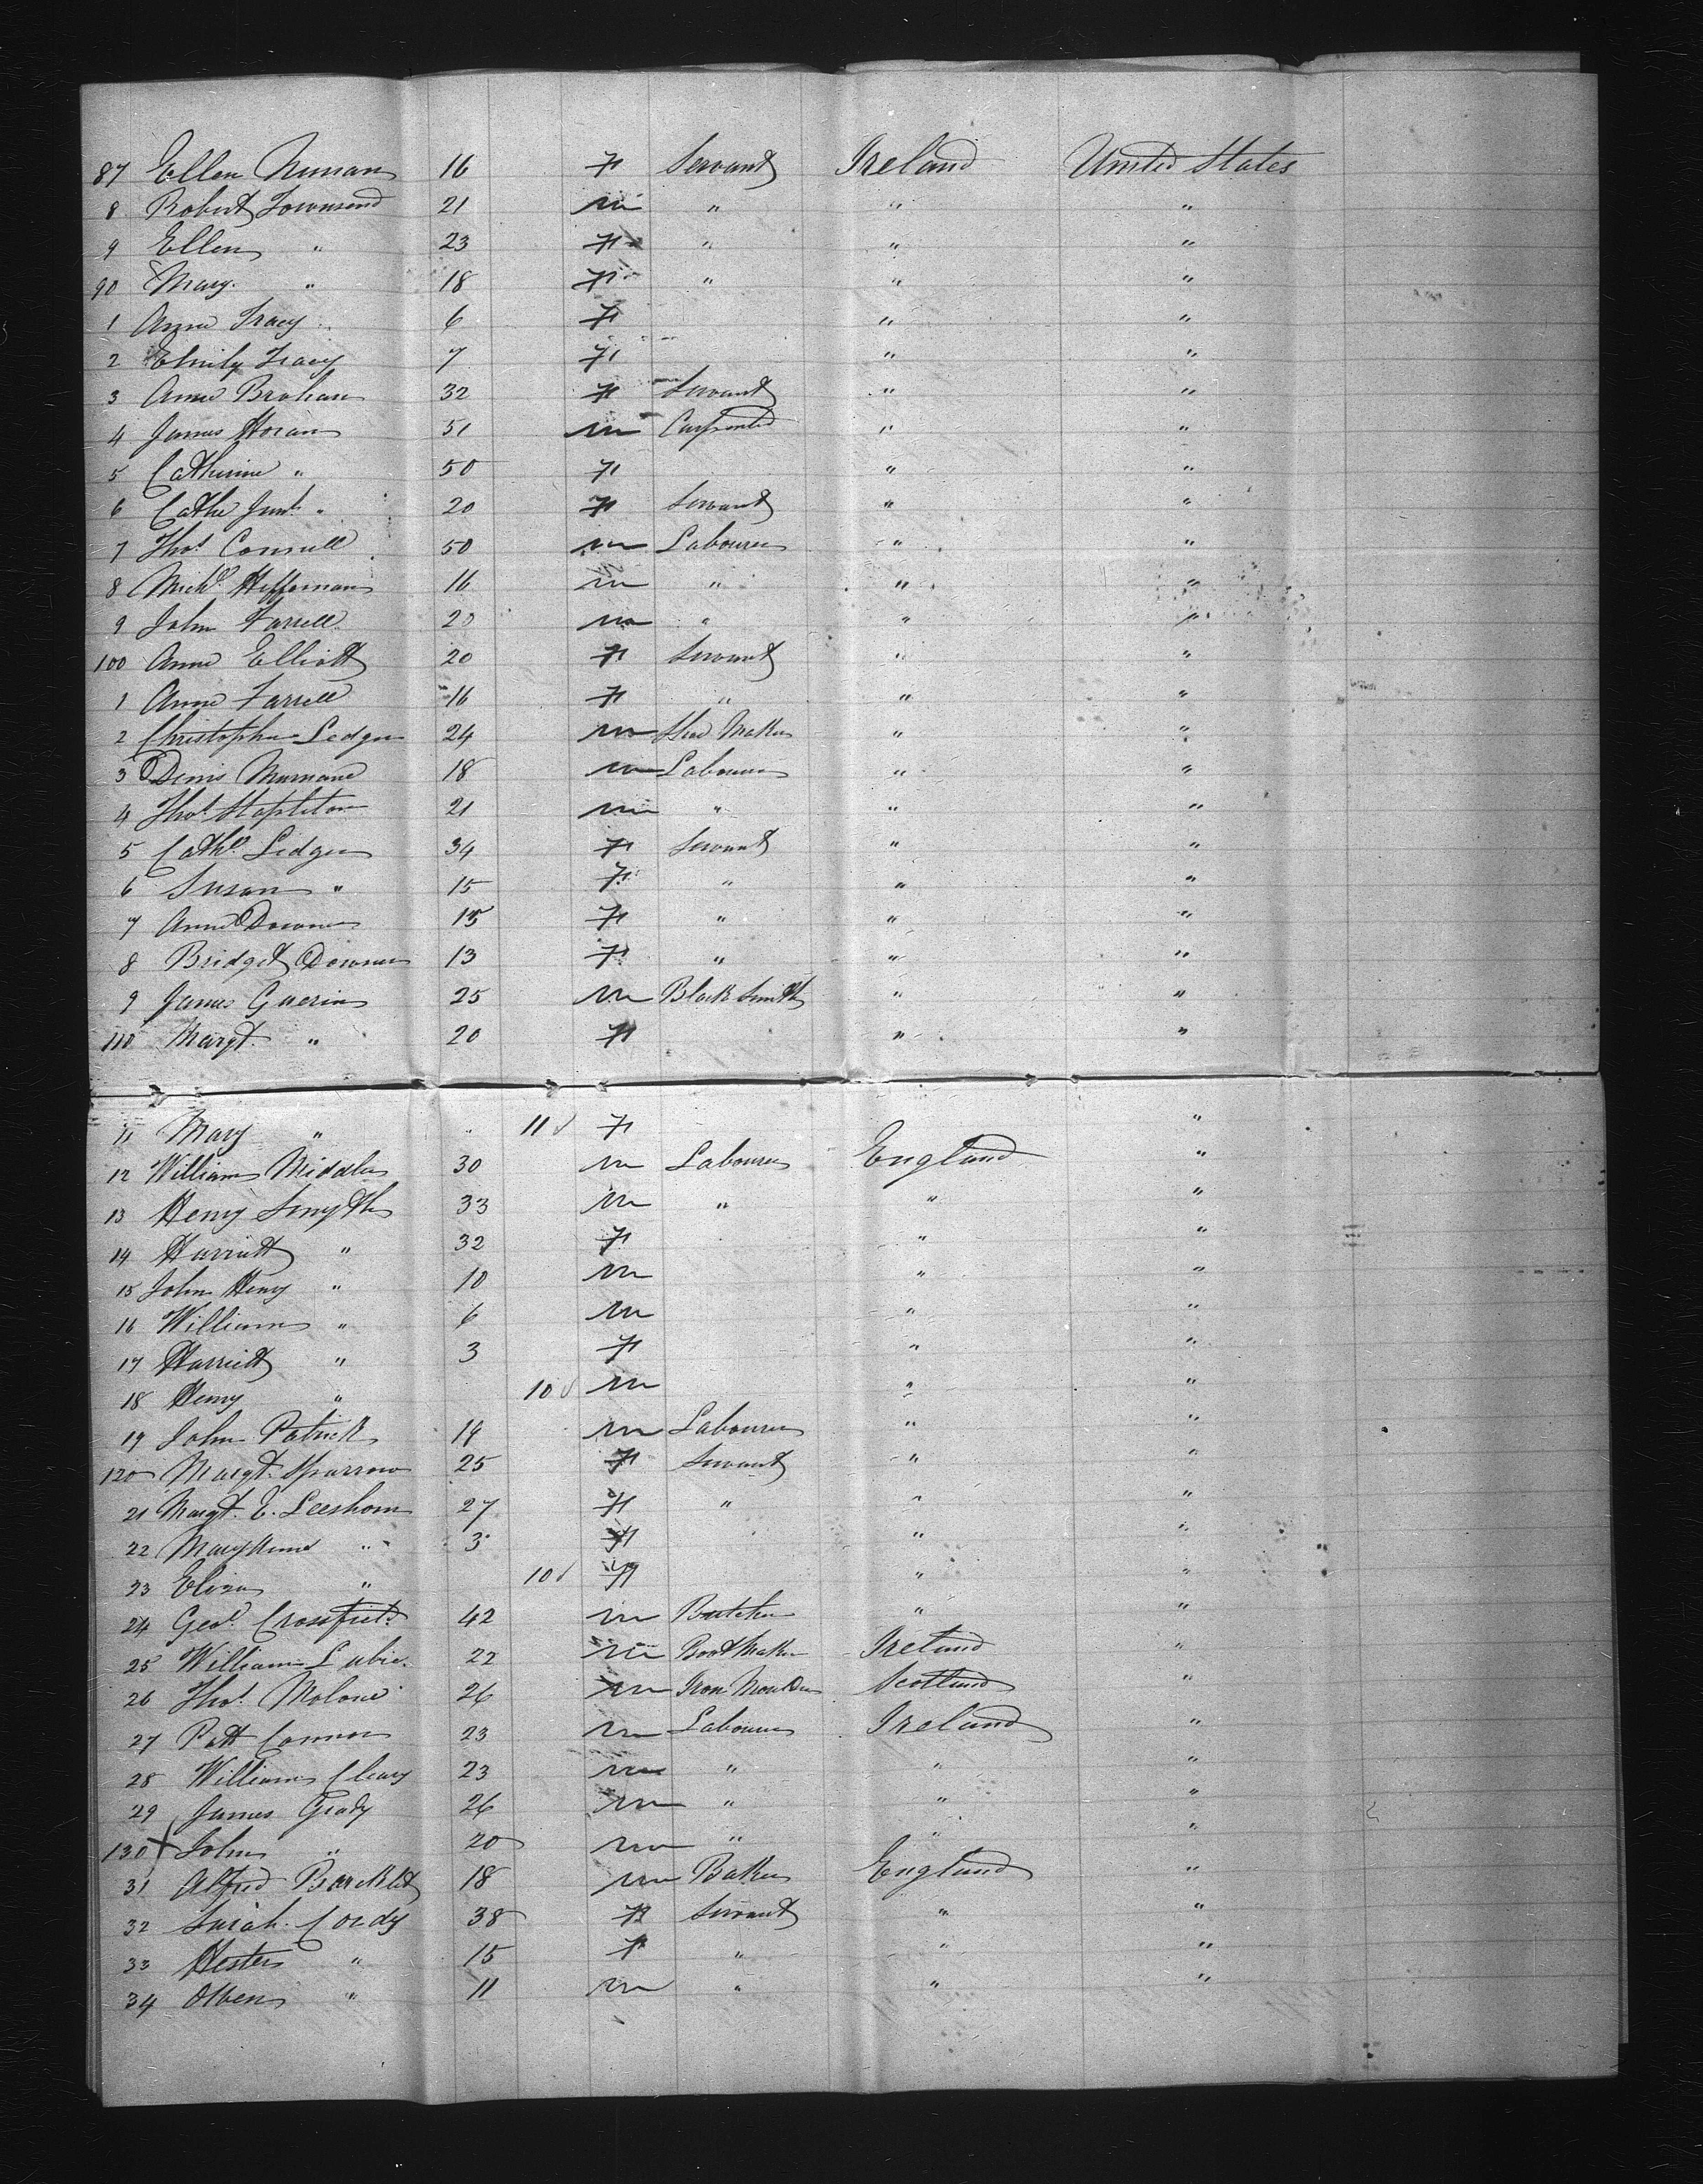 87 Ellen Nunan 16 F Servant Ireland United States
8 Robert Townsend 21 m " " "
9 Ellen " 23 F " " "
90 Mary " 18 F " " "
1 Anne Tracy 6 F " "
2 Emily Tracy 7 F " "
3 Anne Brohan 32 F Servant " "
4 James Horan 51 m Carpenter " "
5 Catherine " 50 F " "
6 Cathe Junr " 20 F Servant " "
7 Thos Connell 50 m Labourer " "
8 Michl Heffernan 16 m " " "
9 John Farrell 20 m " " "
100 Anne Elliott 20 F Servant " "
1 Anne Farrell 16 F " " "
2 Christopher Ledger 24 m Shoe Maker " "
3 Denis Murnane 18 m Labourer " "
4 Thos Stapleton 21 m " " "
5 Cathe Ledger 34 F Servant " "
6 Susan " 15 F " " "
7 Anne Downes 15 F " " "
8 Bridget Downes 13 F " " "
9 James Guerin 25 m Black Smith " "
110 Margt " 20 F " "
11 Mary " 11 F "
12 William Middler 30 m Labourer England "
13 Henry Smyth 33 m " " "
14 Harriett " 32 F " "
15 John Henry " 10 m " "
16 William " 6 m " "
17 Harriett " 3 F " "
18 Henry " 10 m " "
19 John Patrick 19 m Labourer " "
120 Margt Sparrow 25 F Servant " "
21 Margt E. Leeshom 27 F " " "
22 Mary Anne " 3 F " "
23 Eliza " 10 F " "
24 Geo. Crossfield 42 m Butcher " "
25 William Lubie 22 m Boot Maker Ireland "
26 Thos Molone 26 m Iron Moulder Scotland "
27 Patt Connor 23 m Labourer Ireland "
28 William Cleary 23 m " " "
29 James Grady 26 m " " "
130 John " 20 m " " "
31 Alfred Barcklet 18 m Baker England "
32 Sarah Cordy 38 F Servant " "
33 Hester " 15 F " " "
34 Owen " 11 m " " "